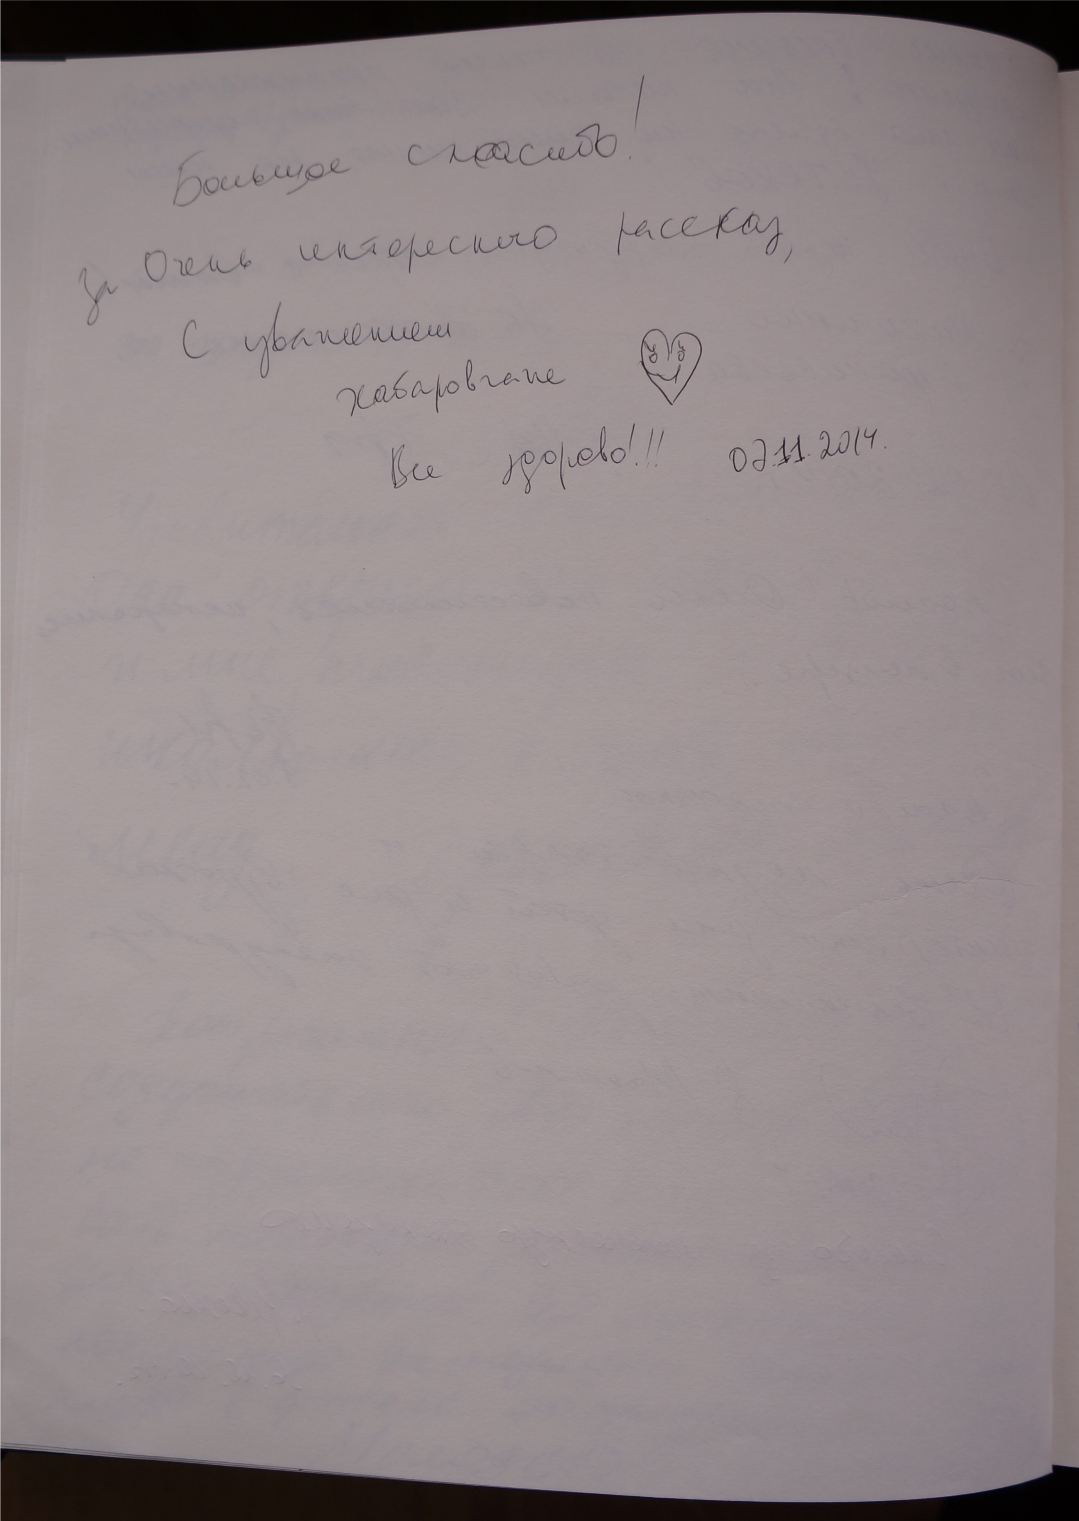 Большое спасибо!
за Очень интересного рассказ,
С уважением
хабаровчане
Все здорово!!! 07.11.2014.